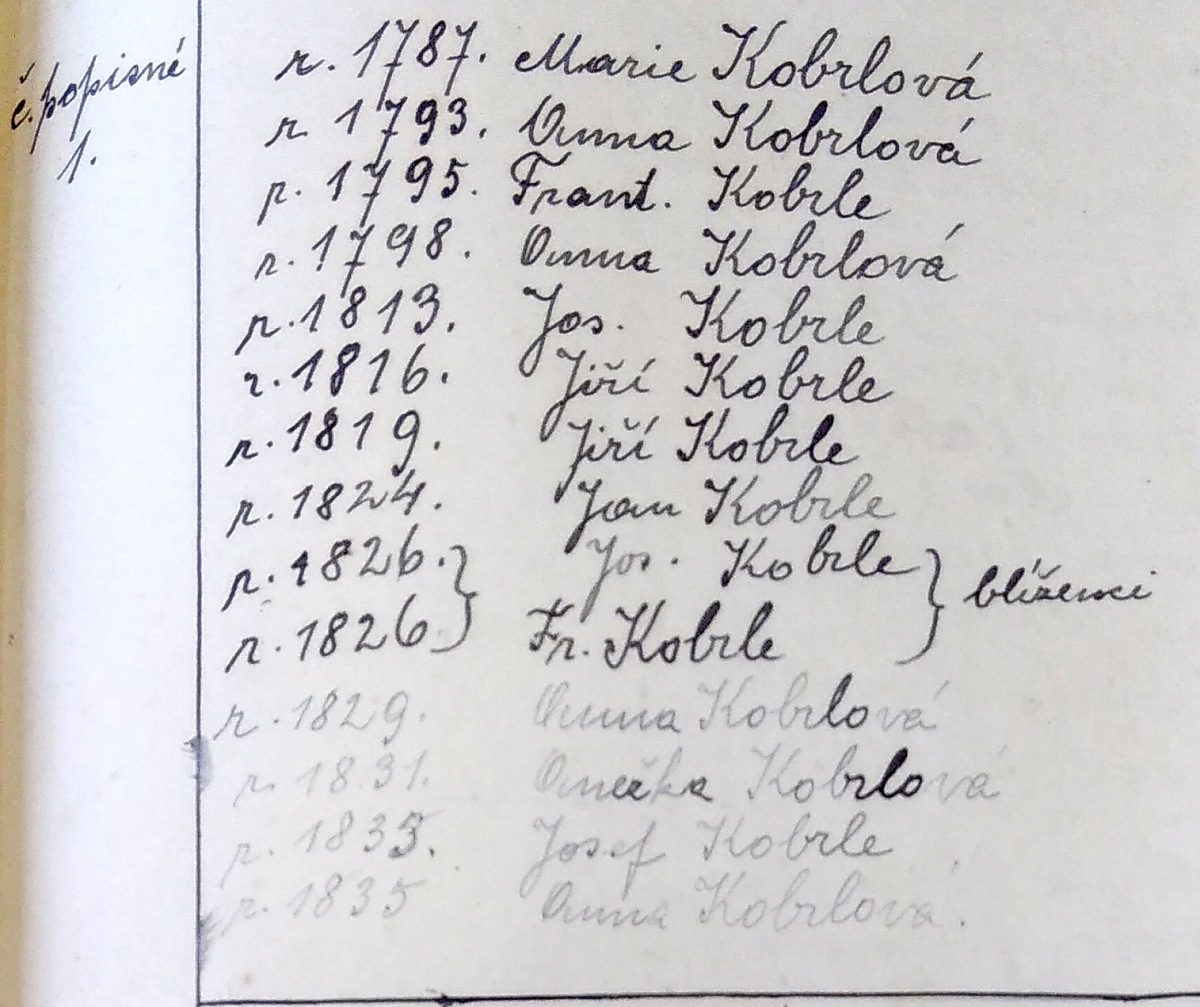 č. popisné
1.
r. 1787. Marie Kobrlová
r. 1793. Anna Kobrlová
r. 1795. Frant. Kobrle
r. 1798. Anna Kobrlová
r. 1813. Jos. Kobrle
r. 1816. Jiří Kobrle
r. 1819. Jiří Kobrle
r. 1824. Jan Kobrle
r. 1826. Jos. Kobrle } blíženci
r. 1826 Fr. Kobrle
r. 1829. Anna Kobrlová
r. 1831. Anežka Kobrlová
r. 1833. Josef Kobrle
r. 1835 Anna Kobrlová.